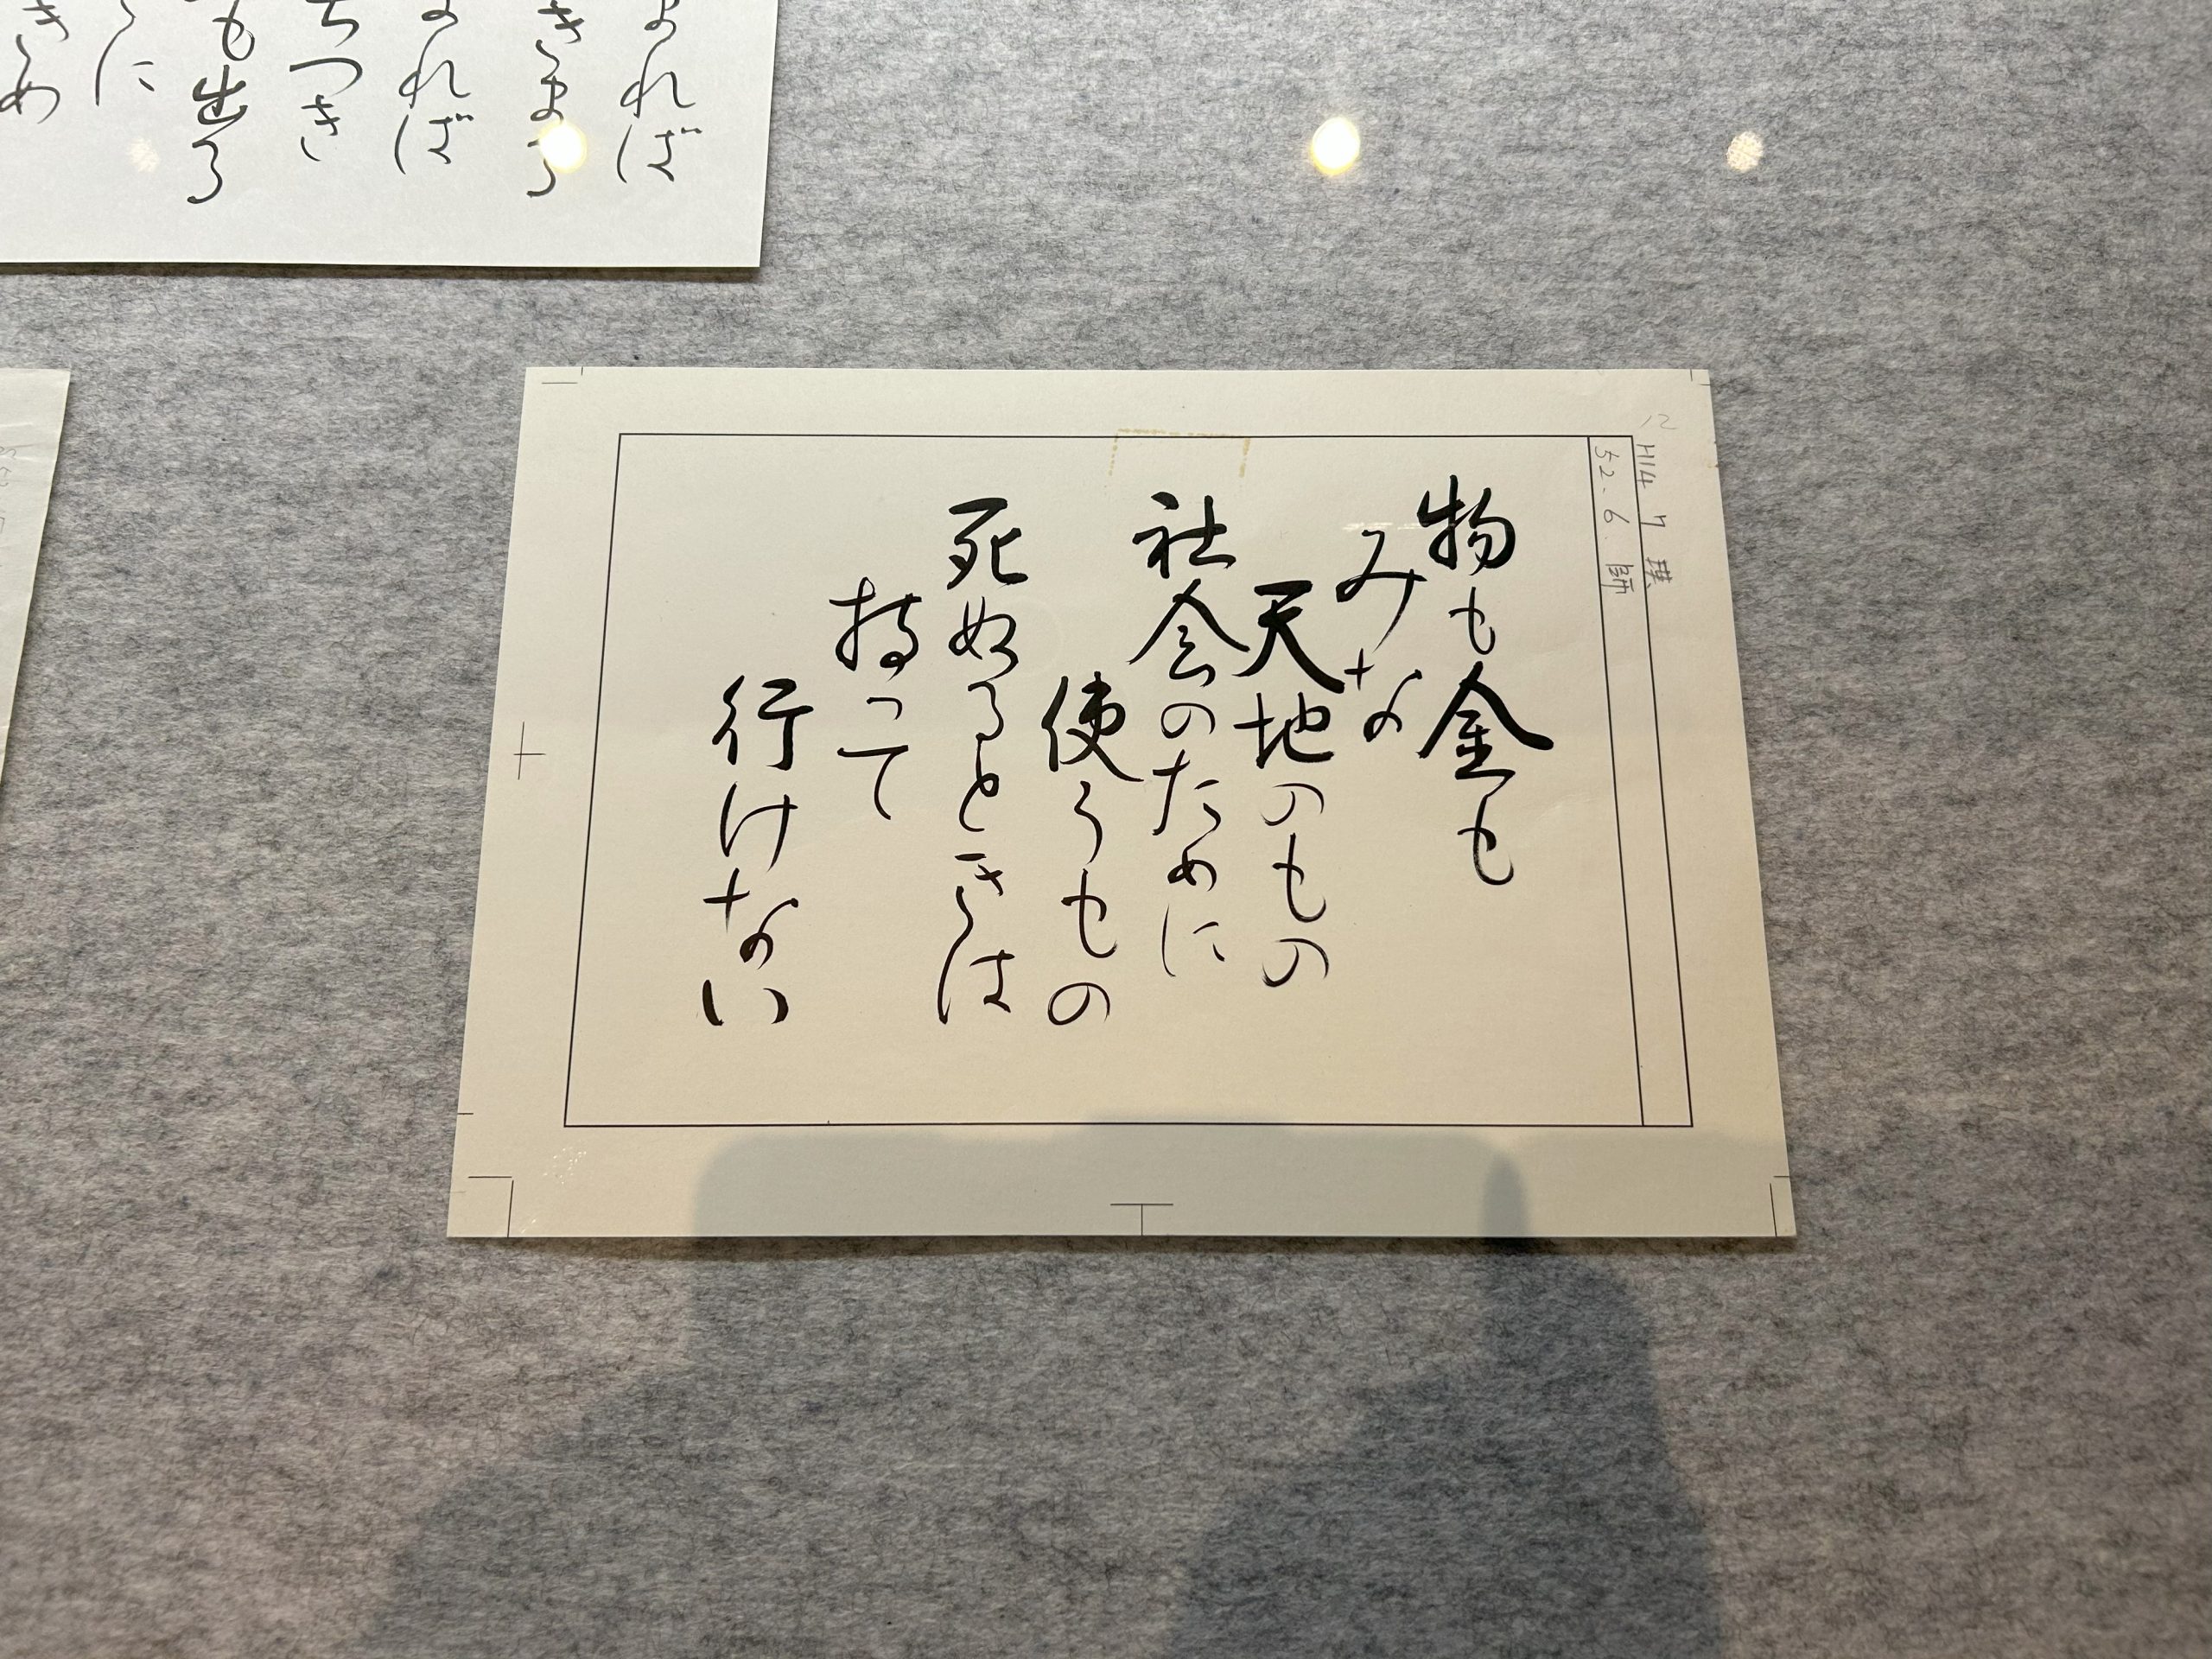 物も金も
みな
天地のもの
社会のために
使うもの
死ぬるときは
持って
行けない
52.6.師
H14
12
れば
きまる
れば
ちつき
も出る
に
きめ